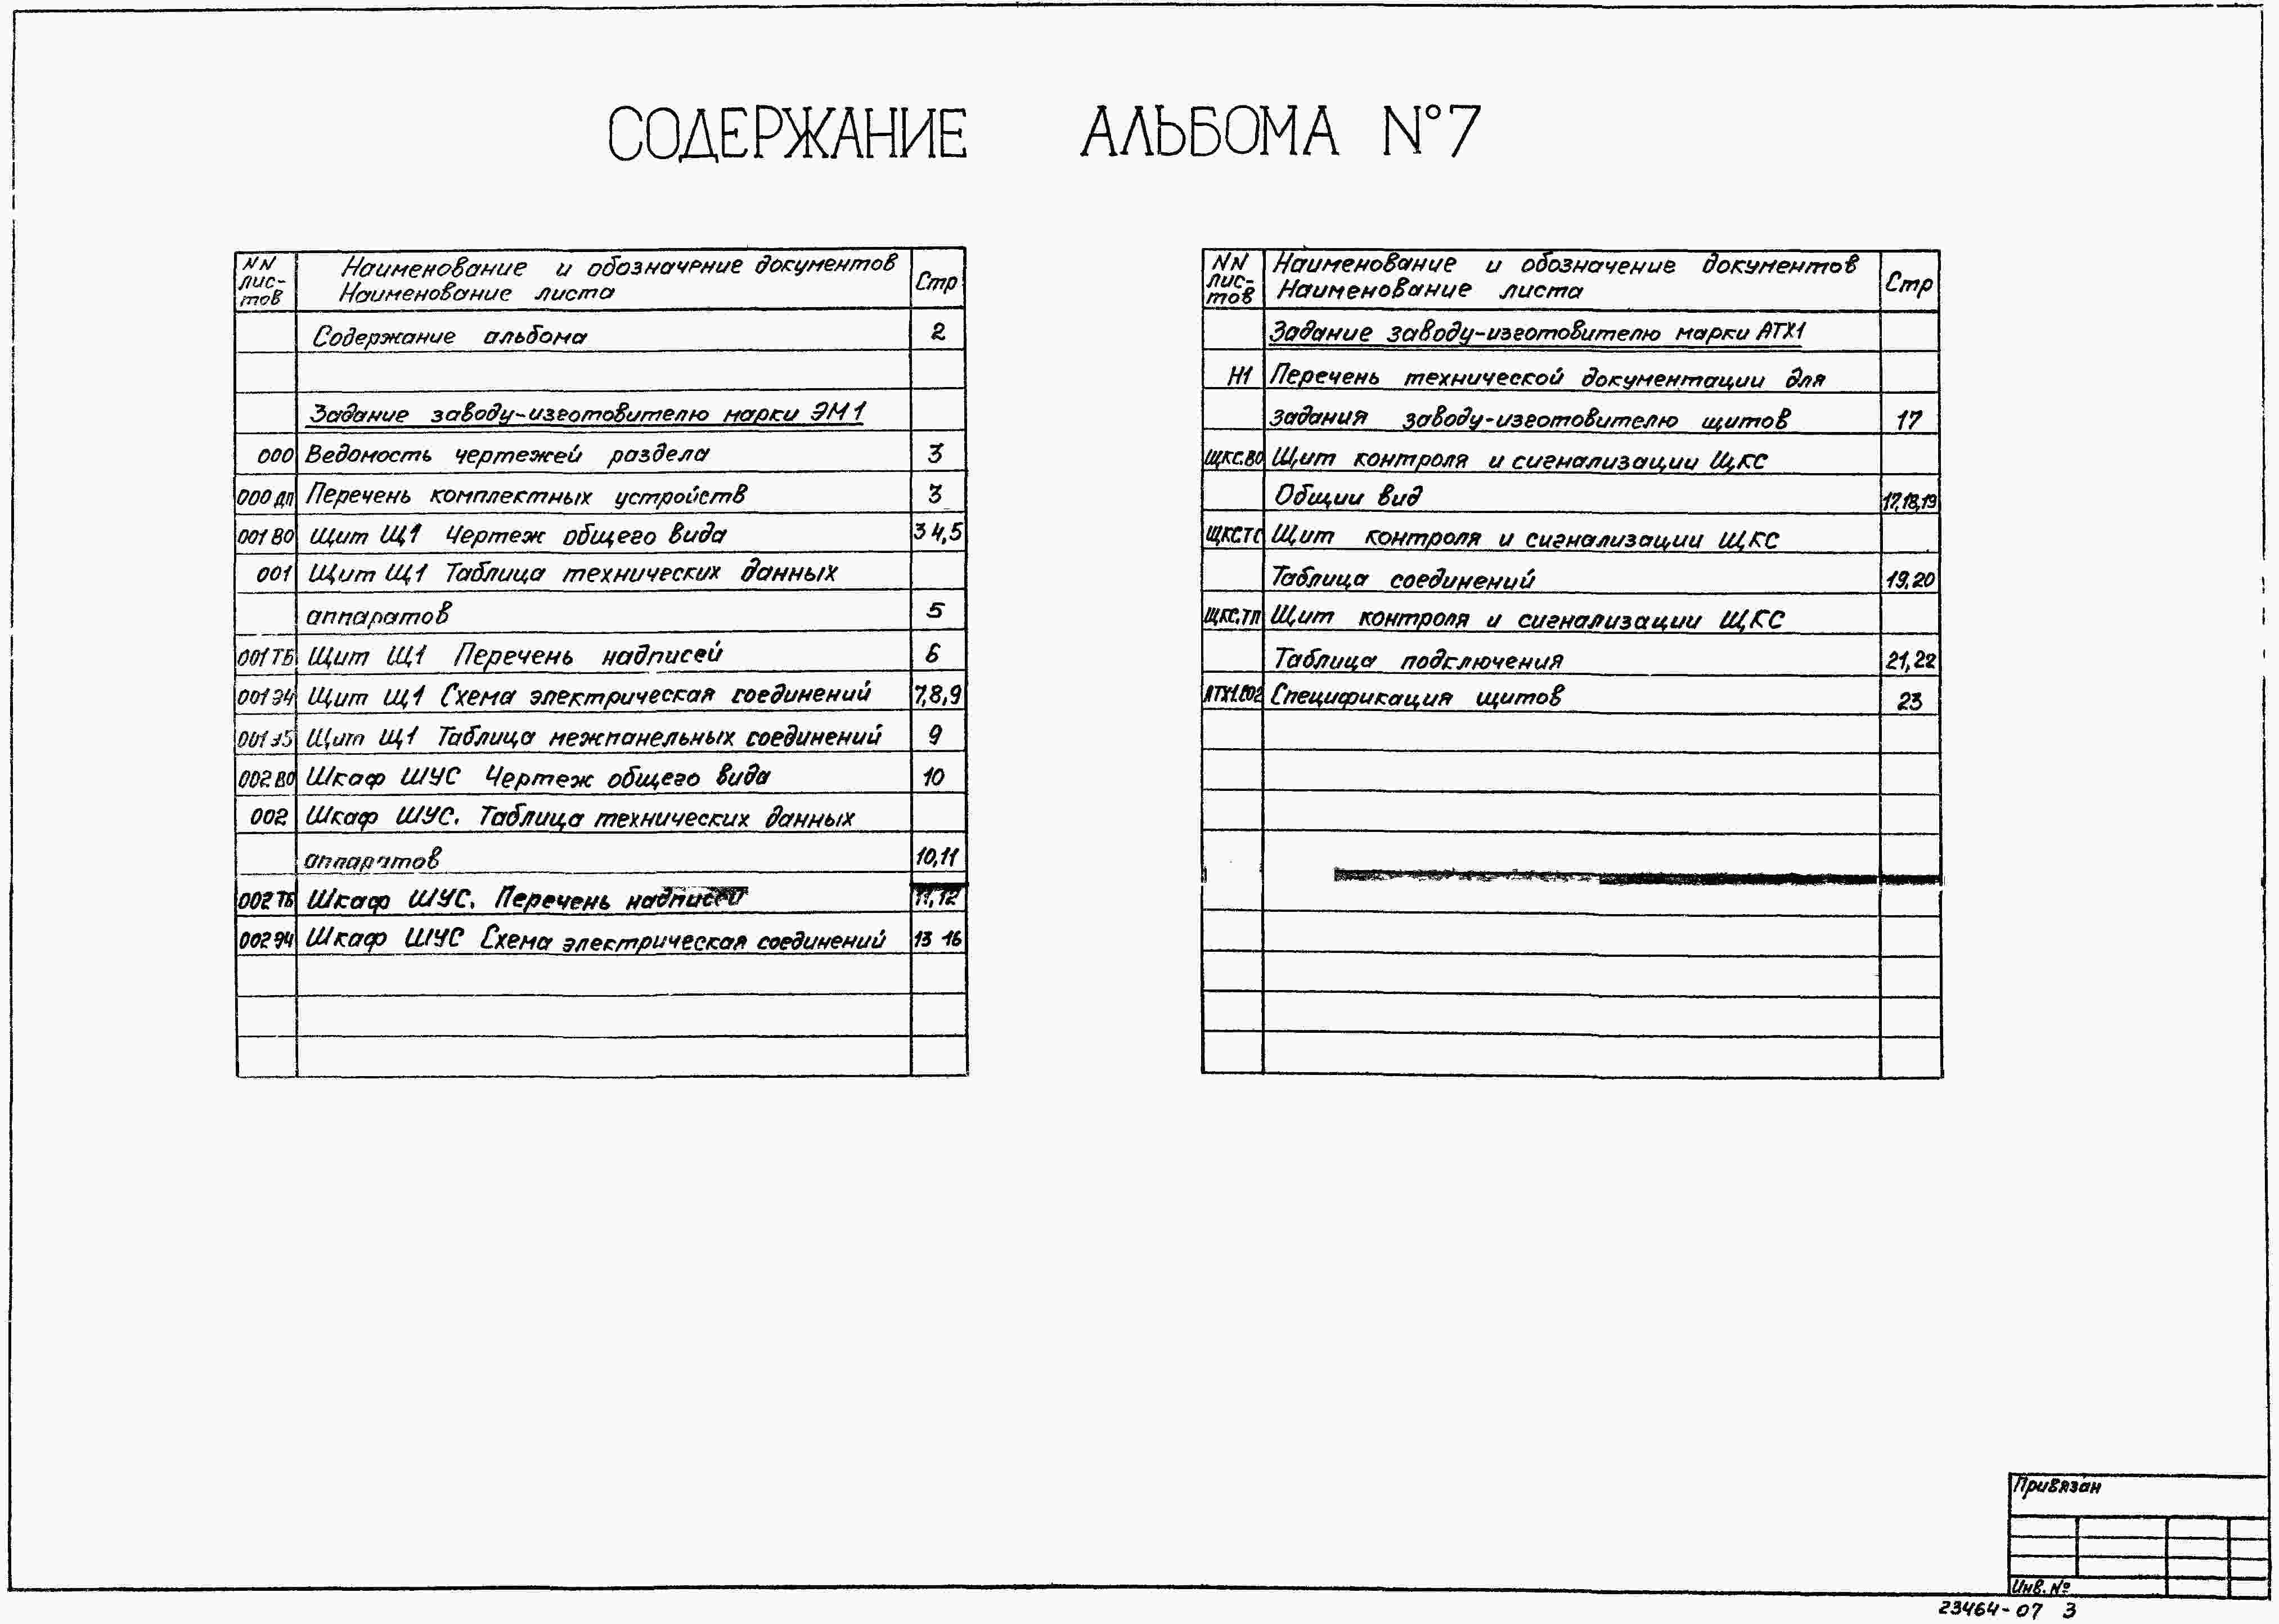 СОДЕРЖАНИЕ АЛЬБОМА №7
NN лис-тов | Наименование и обозначение документов Наименование листа | Стр
Содержание альбома 2
Задание заводу-изготовителю марки ЭМ1
000 Ведомость чертежей раздела 3
000 ДП Перечень комплектных устройств 3
001 ВО Щит Щ1 Чертеж общего вида 3 4,5
001 Щит Щ1 Таблица технических данных
аппаратов 5
001 ТБ Щит Щ1 Перечень надписей 6
001 Э4 Щит Щ1 Схема электрическая соединений 7,8,9
001 Э5 Щит Щ1 Таблица межпанельных соединений 9
002 ВО Шкаф ШУС Чертеж общего вида 10
002 Шкаф ШУС. Таблица технических данных
аппаратов 10,11
002 ТБ Шкаф ШУС. Перечень надписей 11,12
002 Э4 Шкаф ШУС Схема электрическая соединений 13 16
NN лис-тов | Наименование и обозначение документов Наименование листа | Стр
Задание заводу-изготовителю марки АТХ1
Н1 Перечень технической документации для
задания заводу-изготовителю щитов 17
ЩКС.ВО Щит контроля и сигнализации ЩКС
Общии вид 17,18,19
ЩКС.ТС Щит контроля и сигнализации ЩКС
Таблица соединений 19,20
ЩКС.ТП Щит контроля и сигнализации ЩКС
Таблица подключения 21,22
АТХ1.СО2 Спецификация щитов 23
Привязан
Инв. №
23464-07 3